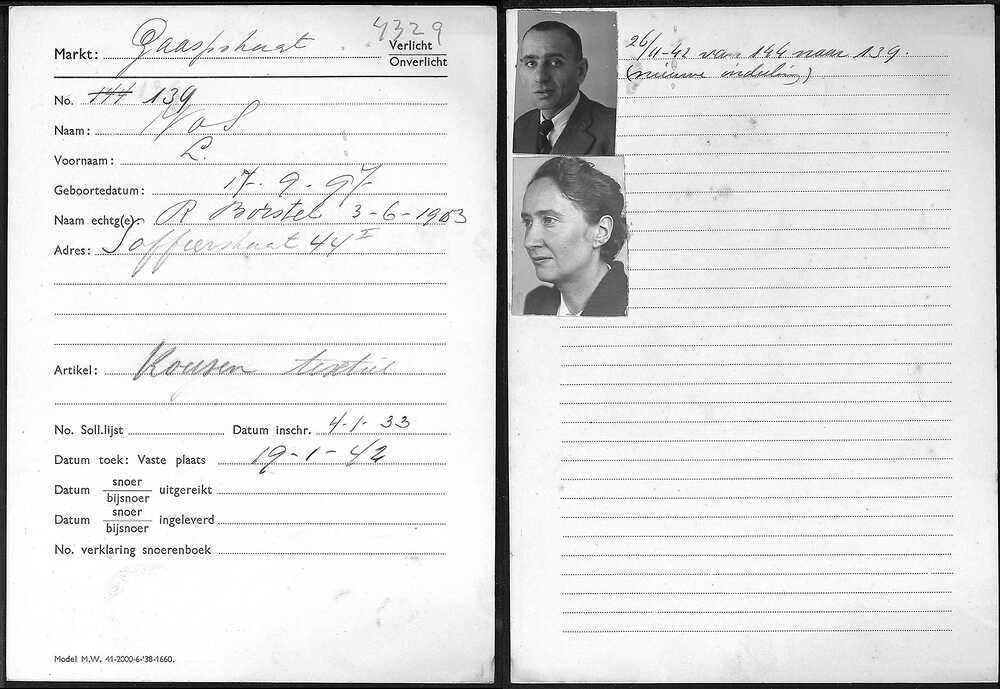 4329
Markt: Gaaspstraat
Verlicht
Onverlicht
No. 144 139
Naam: Vos
Voornaam: L.
Geboortedatum: 17-9-97
Naam echtg(e)n: R Borstel 3-6-1903
Adres: Joffierstraat 44 I
Artikel: Kousen textiel
No. Soll.lijst Datum inschr. 4-1-33
Datum toek: Vaste plaats 19-1-42
Datum snoer/bijsnoer uitgereikt
Datum snoer/bijsnoer ingeleverd
No. verklaring snoerenboek
Model M.W. 41-2000-6-'38-1660.
26/11-42 van 144 naar 139.
(nieuwe indeling)